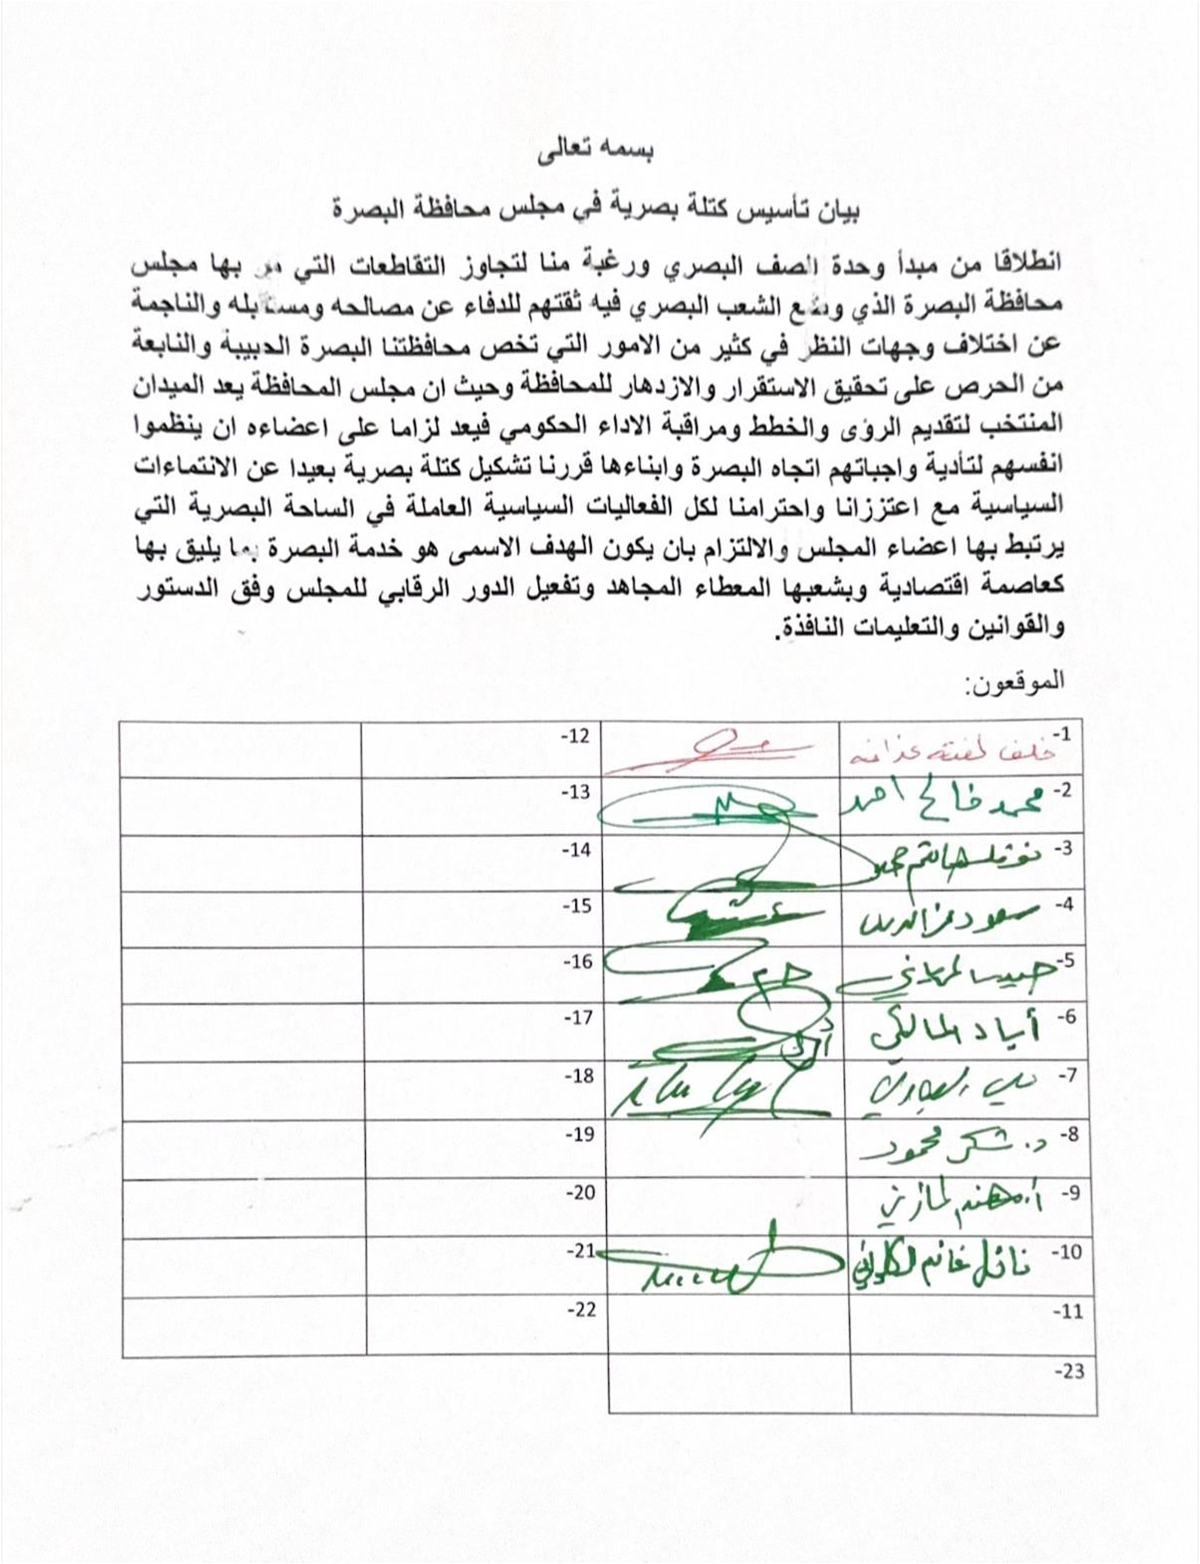 بسمه تعالى
بيان تأسيس كتلة بصرية في مجلس محافظة البصرة
انطلاقا من مبدأ وحدة الصف البصري ورغبة منا لتجاوز التقاطعات التي مر بها مجلس
محافظة البصرة الذي وضع الشعب البصري فيه ثقتهم للدفاء عن مصالحه ومستقبله والناجمة
عن اختلاف وجهات النظر في كثير من الامور التي تخص محافظتنا البصرة الحبيبة والنابعة
من الحرص على تحقيق الاستقرار والازدهار للمحافظة وحيث ان مجلس المحافظة يعد الميدان
المنتخب لتقديم الرؤى والخطط ومراقبة الاداء الحكومي فيعد لزاما على اعضاءه ان ينظموا
انفسهم لتأدية واجباتهم اتجاه البصرة وابناءها قررنا تشكيل كتلة بصرية بعيدا عن الانتماءات
السياسية مع اعتززانا واحترامنا لكل الفعاليات السياسية العاملة في الساحة البصرية التي
يرتبط بها اعضاء المجلس والالتزام بان يكون الهدف الاسمى هو خدمة البصرة بما يليق بها
كعاصمة اقتصادية وبشعبها المعطاء المجاهد وتفعيل الدور الرقابي للمجلس وفق الدستور
والقوانين والتعليمات النافذة.
الموقعون:
1- خلف لفته 12-
2- محمد فالح احمد 13-
3- هاشم 14-
4- سعود عز الدين 15-
5- 16-
6- أياد المالكي 17-
7- 18-
8- د. شكر محمود 19-
9- أ. مهند المازني 20-
10- نائل غانم 21-
11- 22-
23-